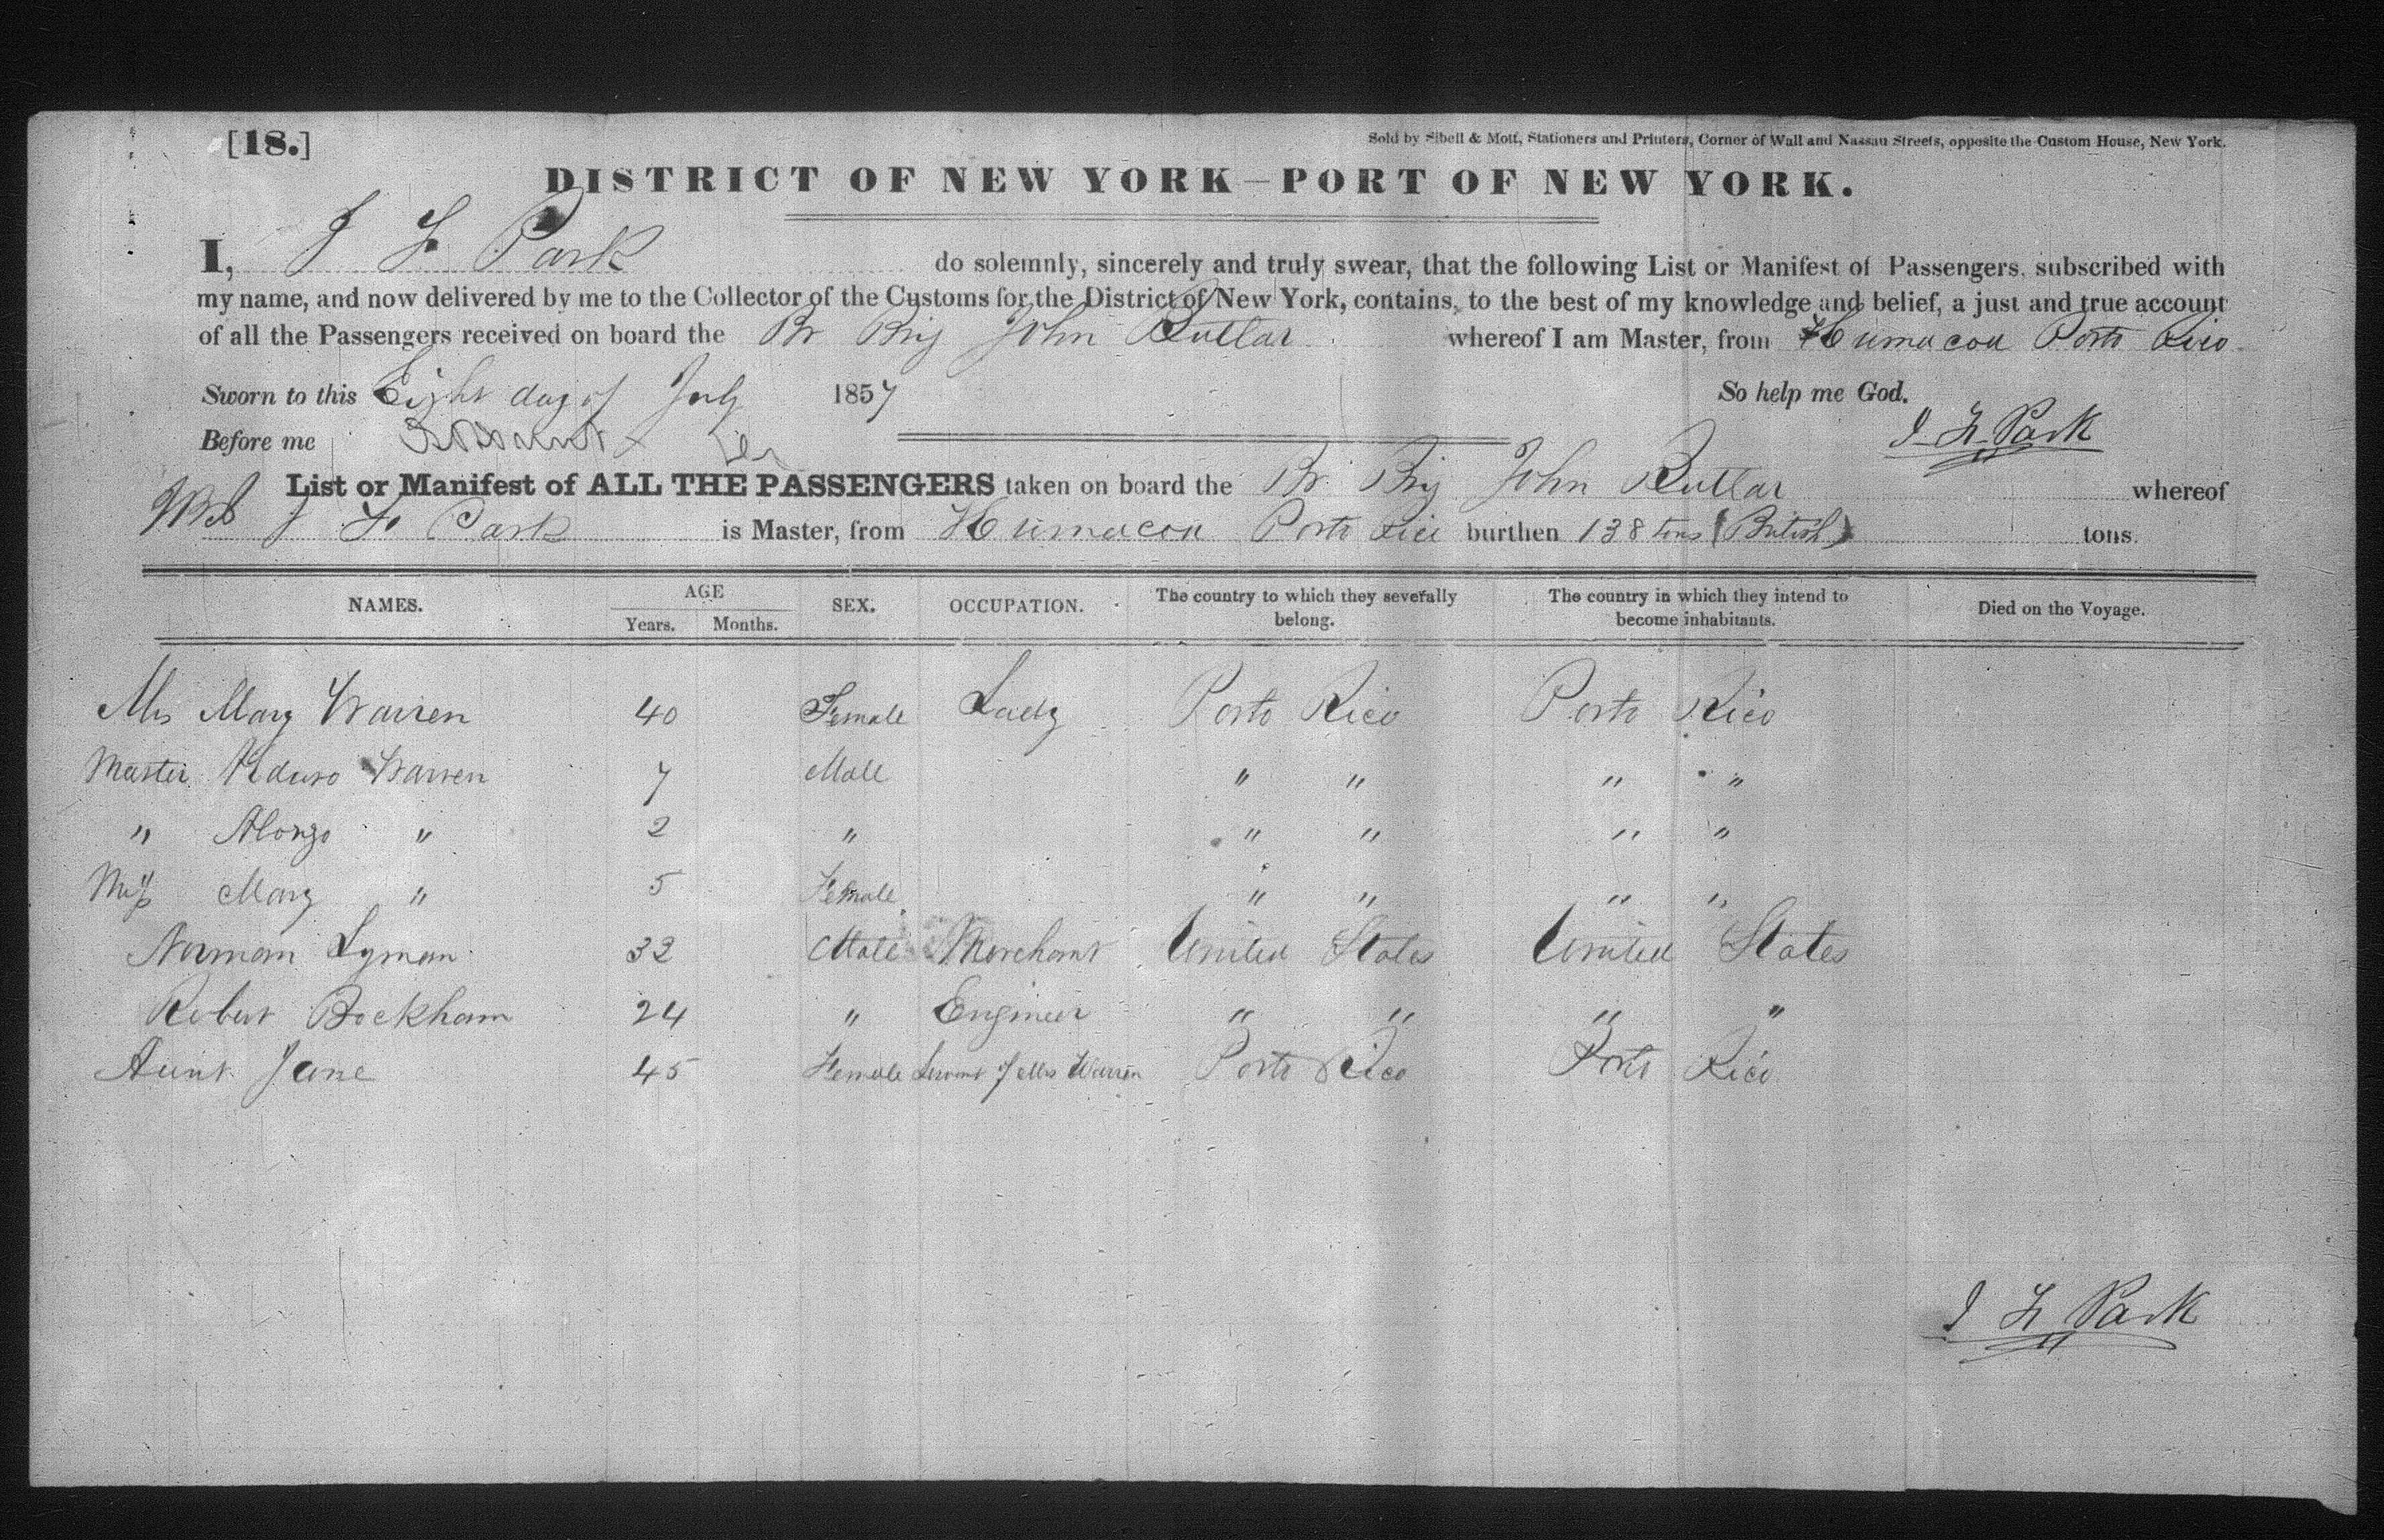 [18.]
Sold by Sibell & Mott, Stationers and Printers, Corner of Wall and Nassau Streets, opposite the Custom House, New York.
DISTRICT OF NEW YORK—PORT OF NEW YORK.
I, J F Park do solemnly, sincerely and truly swear, that the following List or Manifest of Passengers, subscribed with
my name, and now delivered by me to the Collector of the Customs for the District of New York, contains, to the best of my knowledge and belief, a just and true account
of all the Passengers received on board the Br Brig John Butlar whereof I am Master, from Humacoa Porto Rico
Sworn to this Eight day of July 1857 So help me God.
Before me J F Park
List or Manifest of ALL THE PASSENGERS taken on board the Br Brig John Butlar whereof
J F Park is Master, from Humacoa Porto Rico burthen 138 tons (British) tons.
NAMES. AGE Years. Months. SEX. OCCUPATION. The country to which they severally belong. The country in which they intend to become inhabitants. Died on the Voyage.
Mrs Mary Warren 40 Female Lady Porto Rico Porto Rico
Master Warren 7 Male " " " "
" Alonzo " 2 " " " " "
Miss Mary " 5 Female " " " "
Norman Lyman 32 Male Merchant United States United States
Robert Bockham 24 " Engineer " " " "
Aunt Jane 45 Female Servant of Mrs Warren Porto Rico Porto Rico
J F Park